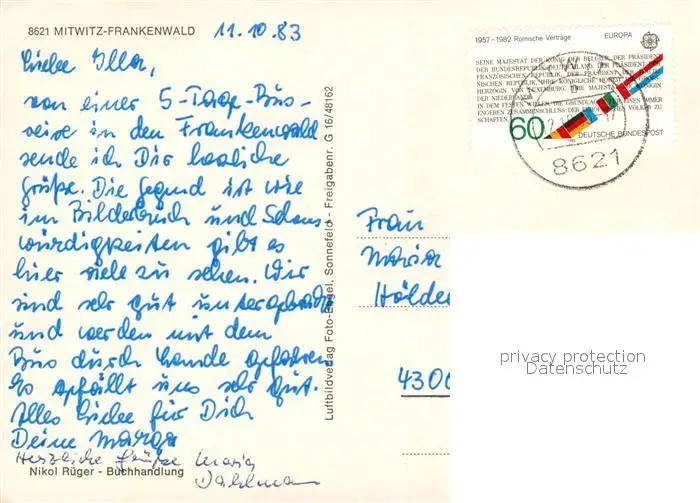 8621 MITWITZ-FRANKENWALD
11.10.83
Liebe Illa,
von einer 5-Tage-Bus-
reise in den Frankenwald
sende ich Dir herzliche
Grüße. Die Gegend ist wie
im Bilderbuch und Sehens-
würdigkeiten gibt es
hier viele zu sehen. Wir
sind sehr gut untergebracht
und werden mit dem
Bus durch Lande gefahren
Es gefällt uns sehr gut.
Alles Liebe für Dich
Deine Marga
Herzliche Grüße Maria
Dahlmann
Nikol Rüger - Buchhandlung
Luftbildverlag Foto-Engel, Sonnefeld - Freigabenr. G 16/48162
1957-1982 Römische Verträge EUROPA
SEINE MAJESTÄT DER KÖNIG DER BELGIER, DER PRÄSIDENT
DER BUNDESREPUBLIK DEUTSCHLAND, DER PRÄSIDENT DER
FRANZÖSISCHEN REPUBLIK, DER PRÄSIDENT DER
HERZOGIN VON LUXEMBURG, IHRE MAJESTÄT DIE
DER NIEDERLANDE
IN DEM FESTEN WILLEN, DIE GRUNDLAGEN FÜR EINEN IMMER
ENGEREN ZUSAMMENSCHLUSS DER EUROPÄISCHEN VÖLKER ZU
SCHAFFEN
60
DEUTSCHE BUNDESPOST
8621
Frau
Maria
Hölder
4300
privacy protection
Datenschutz